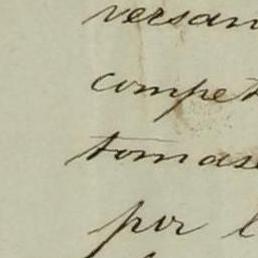 versan
compet
tomase
por l